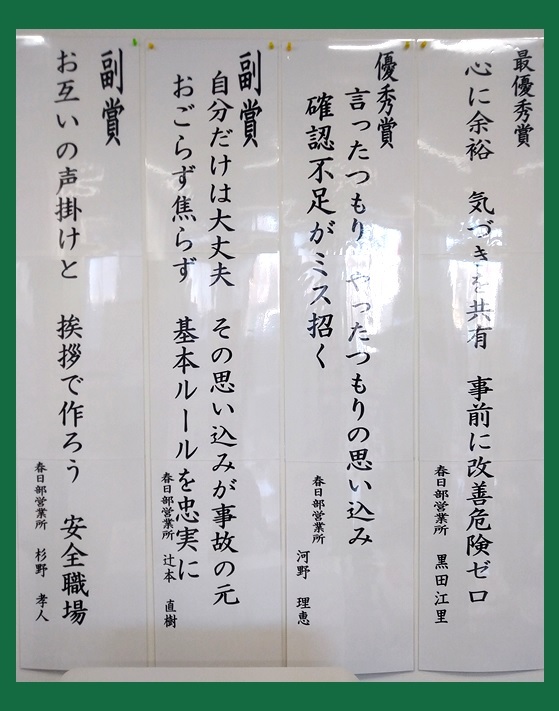 最優秀賞
心に余裕　気づきを共有　事前に改善危険ゼロ
春日部営業所　黒田江里
優秀賞
言ったつもり　やったつもりの思い込み
確認不足がミス招く
春日部営業所　河野　理恵
副賞
自分だけは大丈夫　その思い込みが事故の元
おごらず焦らず　基本ルールを忠実に
春日部営業所　辻本　直樹
副賞
お互いの声掛けと　挨拶で作ろう　安全職場
春日部営業所　杉野　孝人